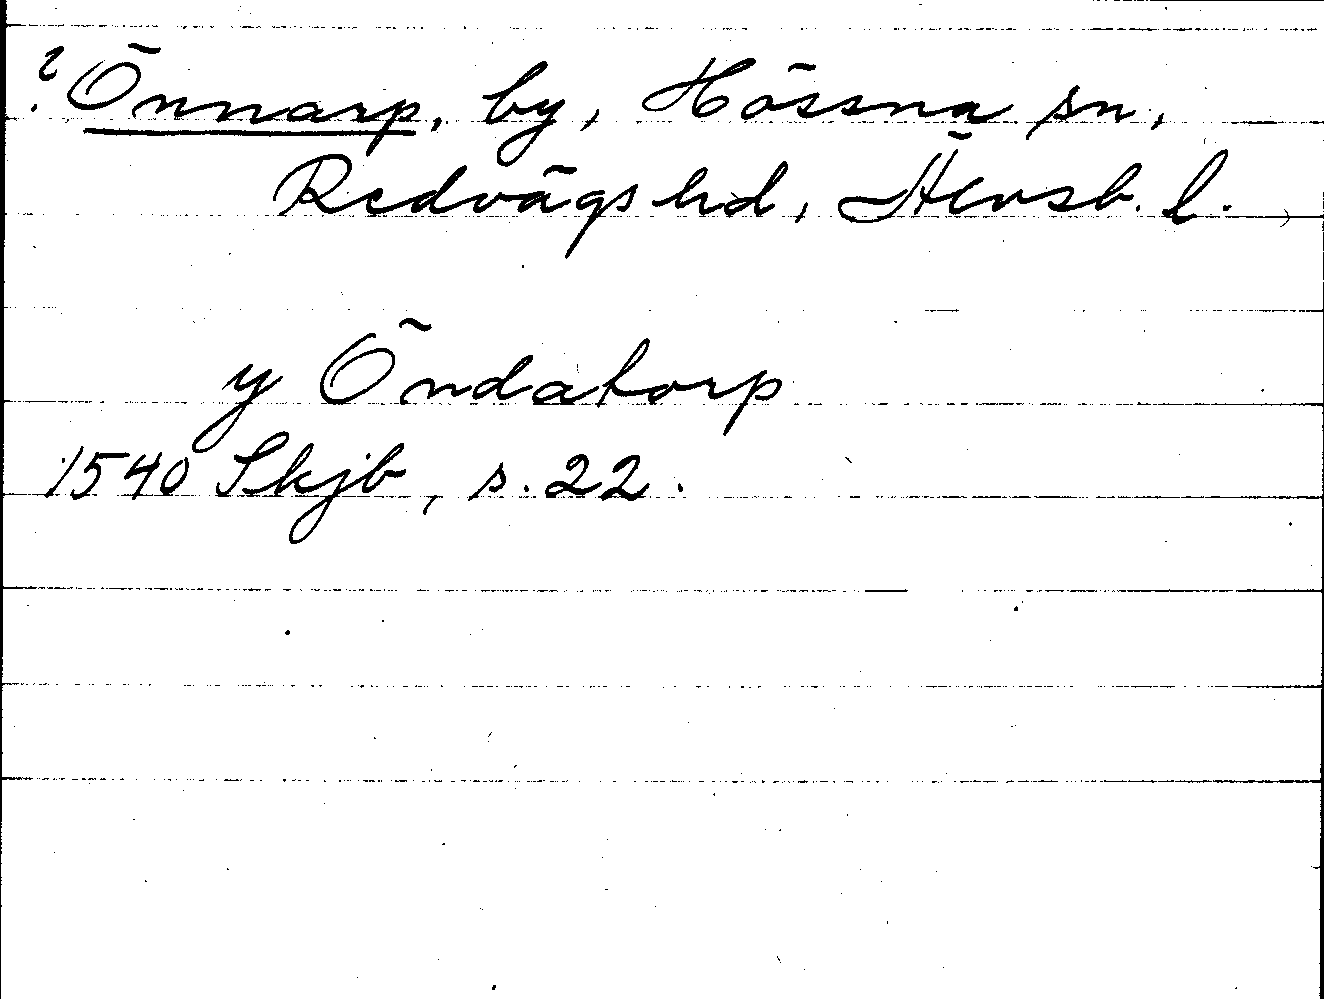 ? Önnarp, by, Hössna sn,
Redvägs hd, Älvsb. l.
y Öndatorp
1540 Skjb, s. 22.